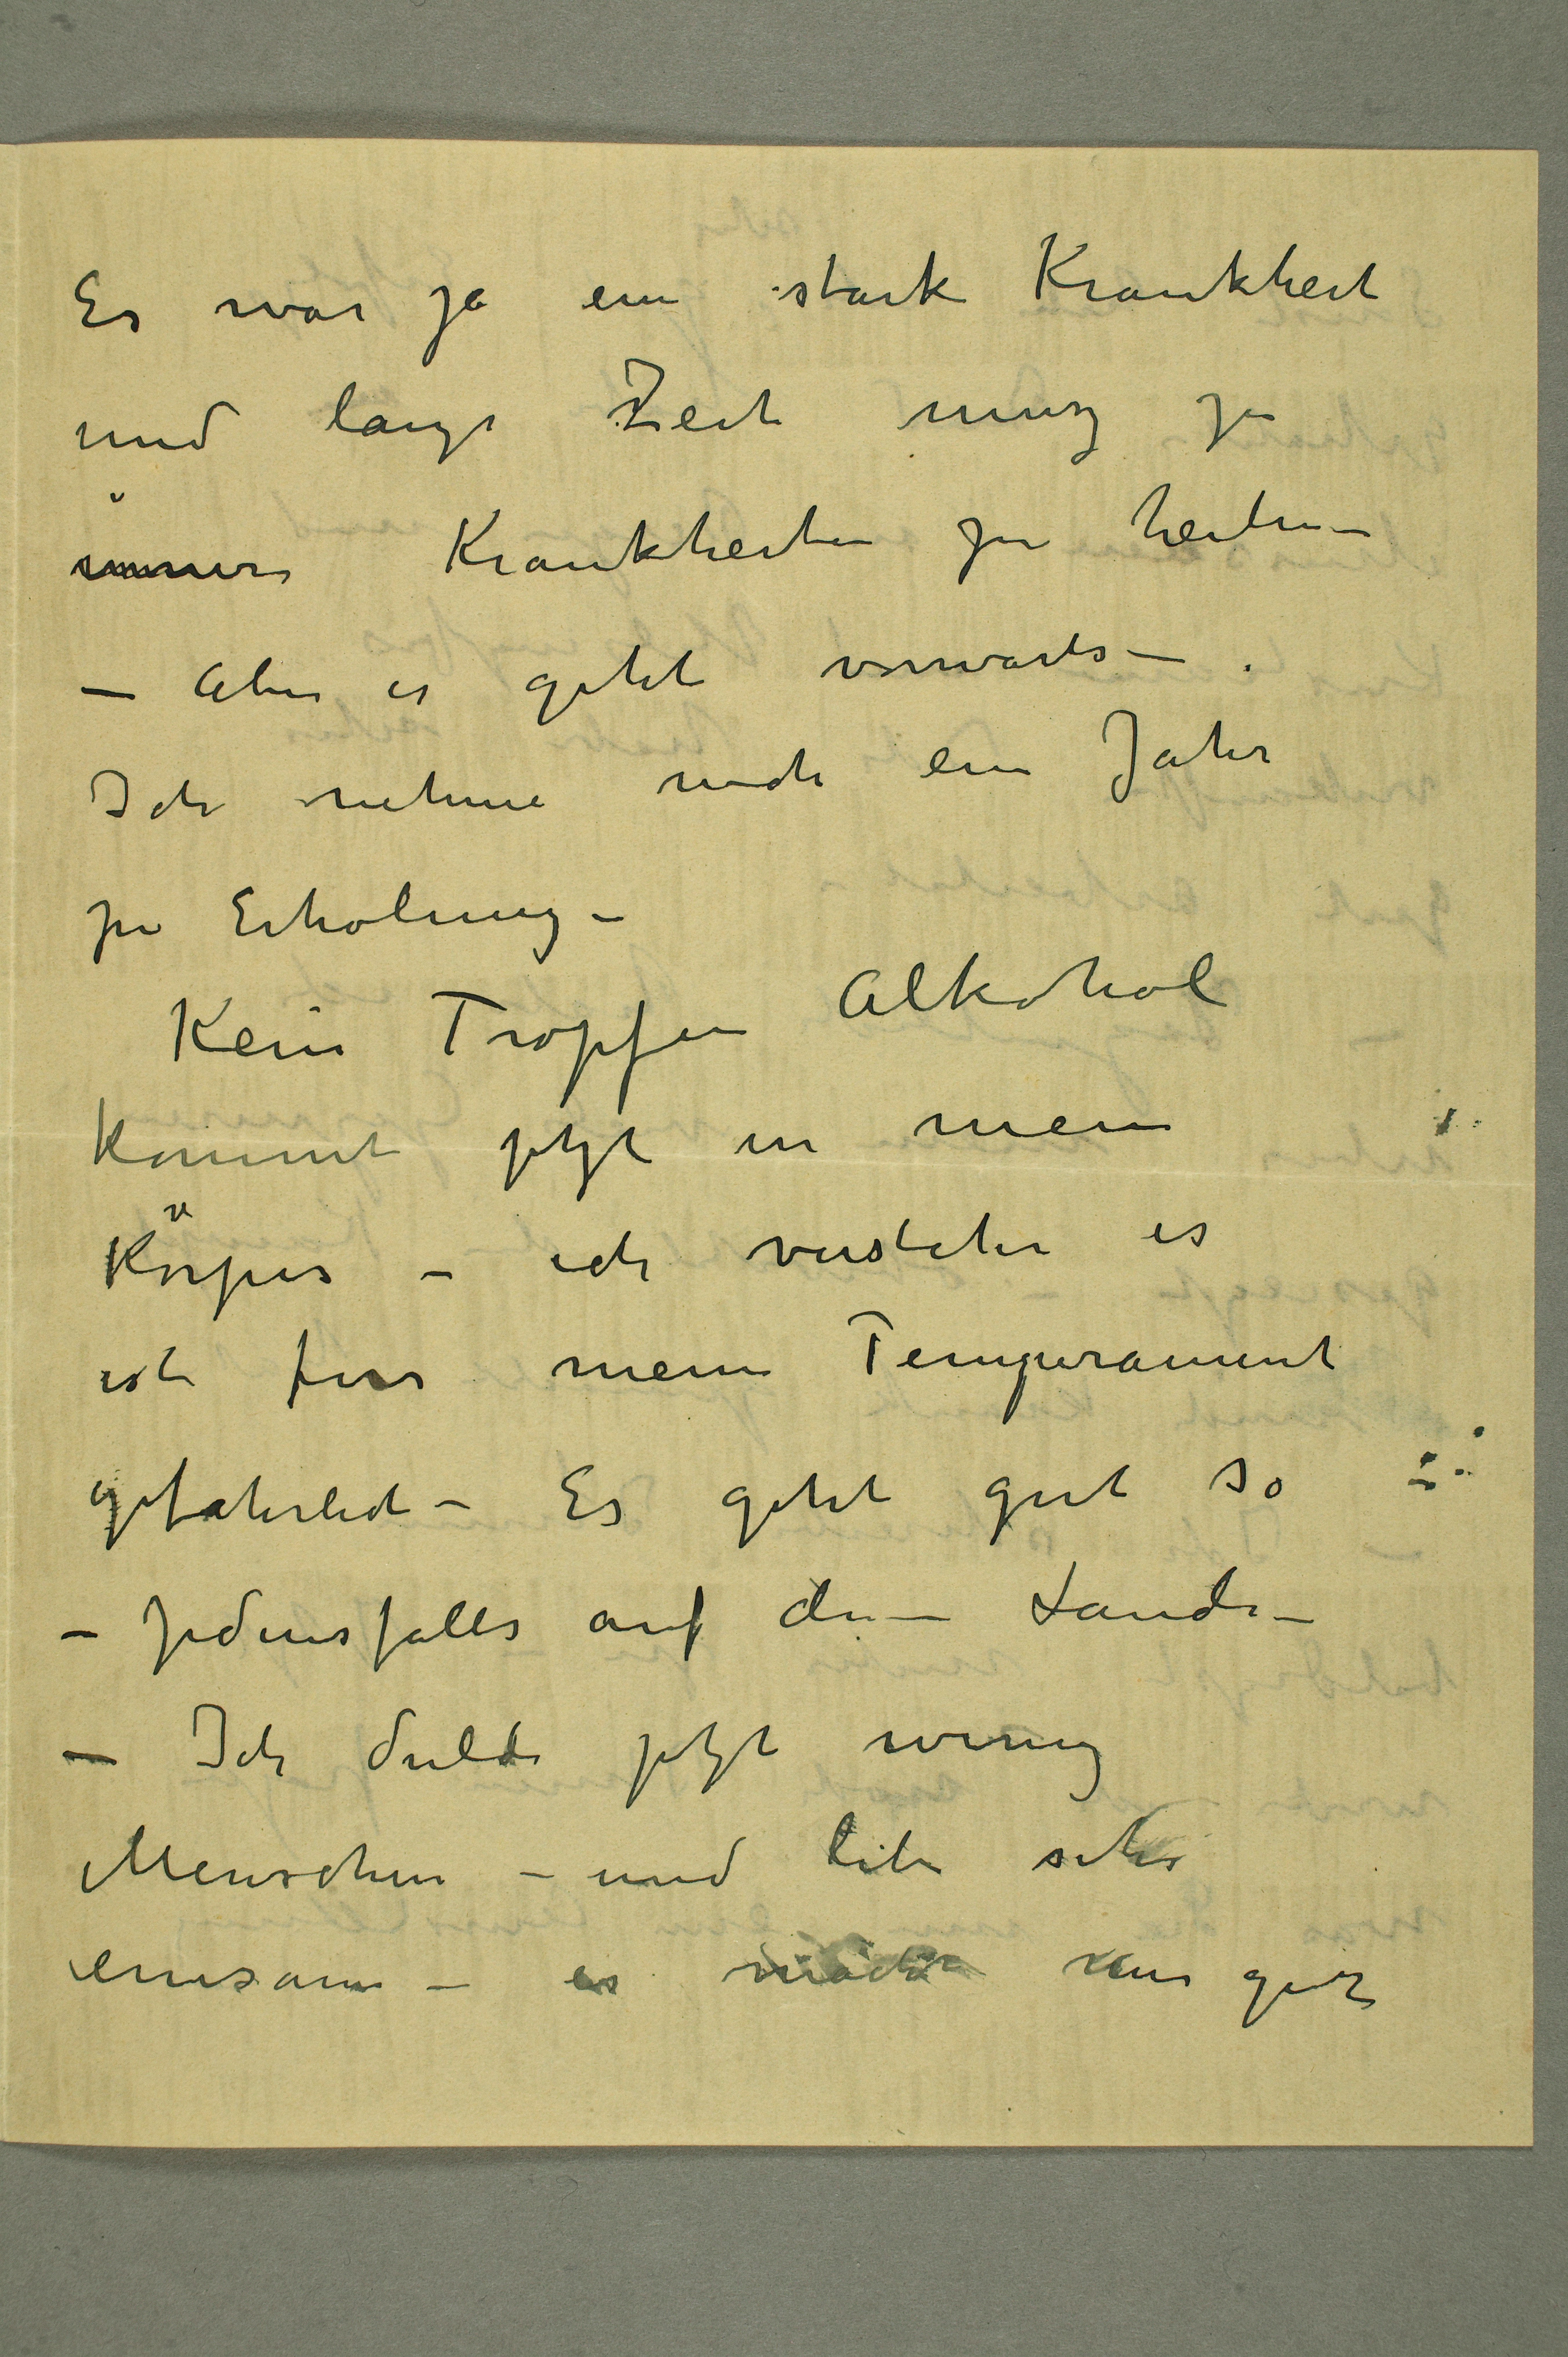 Es war ja ein stark Krankheit
und lange Zeit muss ja
innere Krankheiten zu heilen –
– Aber es geht vorwarts – .
Ich nehme noch ein Jahr
zu Erholung –
Kein Tropfen Alkohol
kommt jetzt in mein
Körper – ich verstehe es
ist fur mein Temperament
gefahrlich – Es geht gut so
– Jedensfalls auf den Lande –
– Ich dulde jetzt wenig
Menschen – und lebe sehr
einsam – es macht nur gut